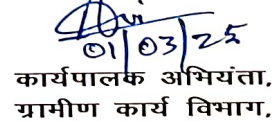 01/03/25
कार्यपालक अभियंता,
ग्रामीण कार्य विभाग,